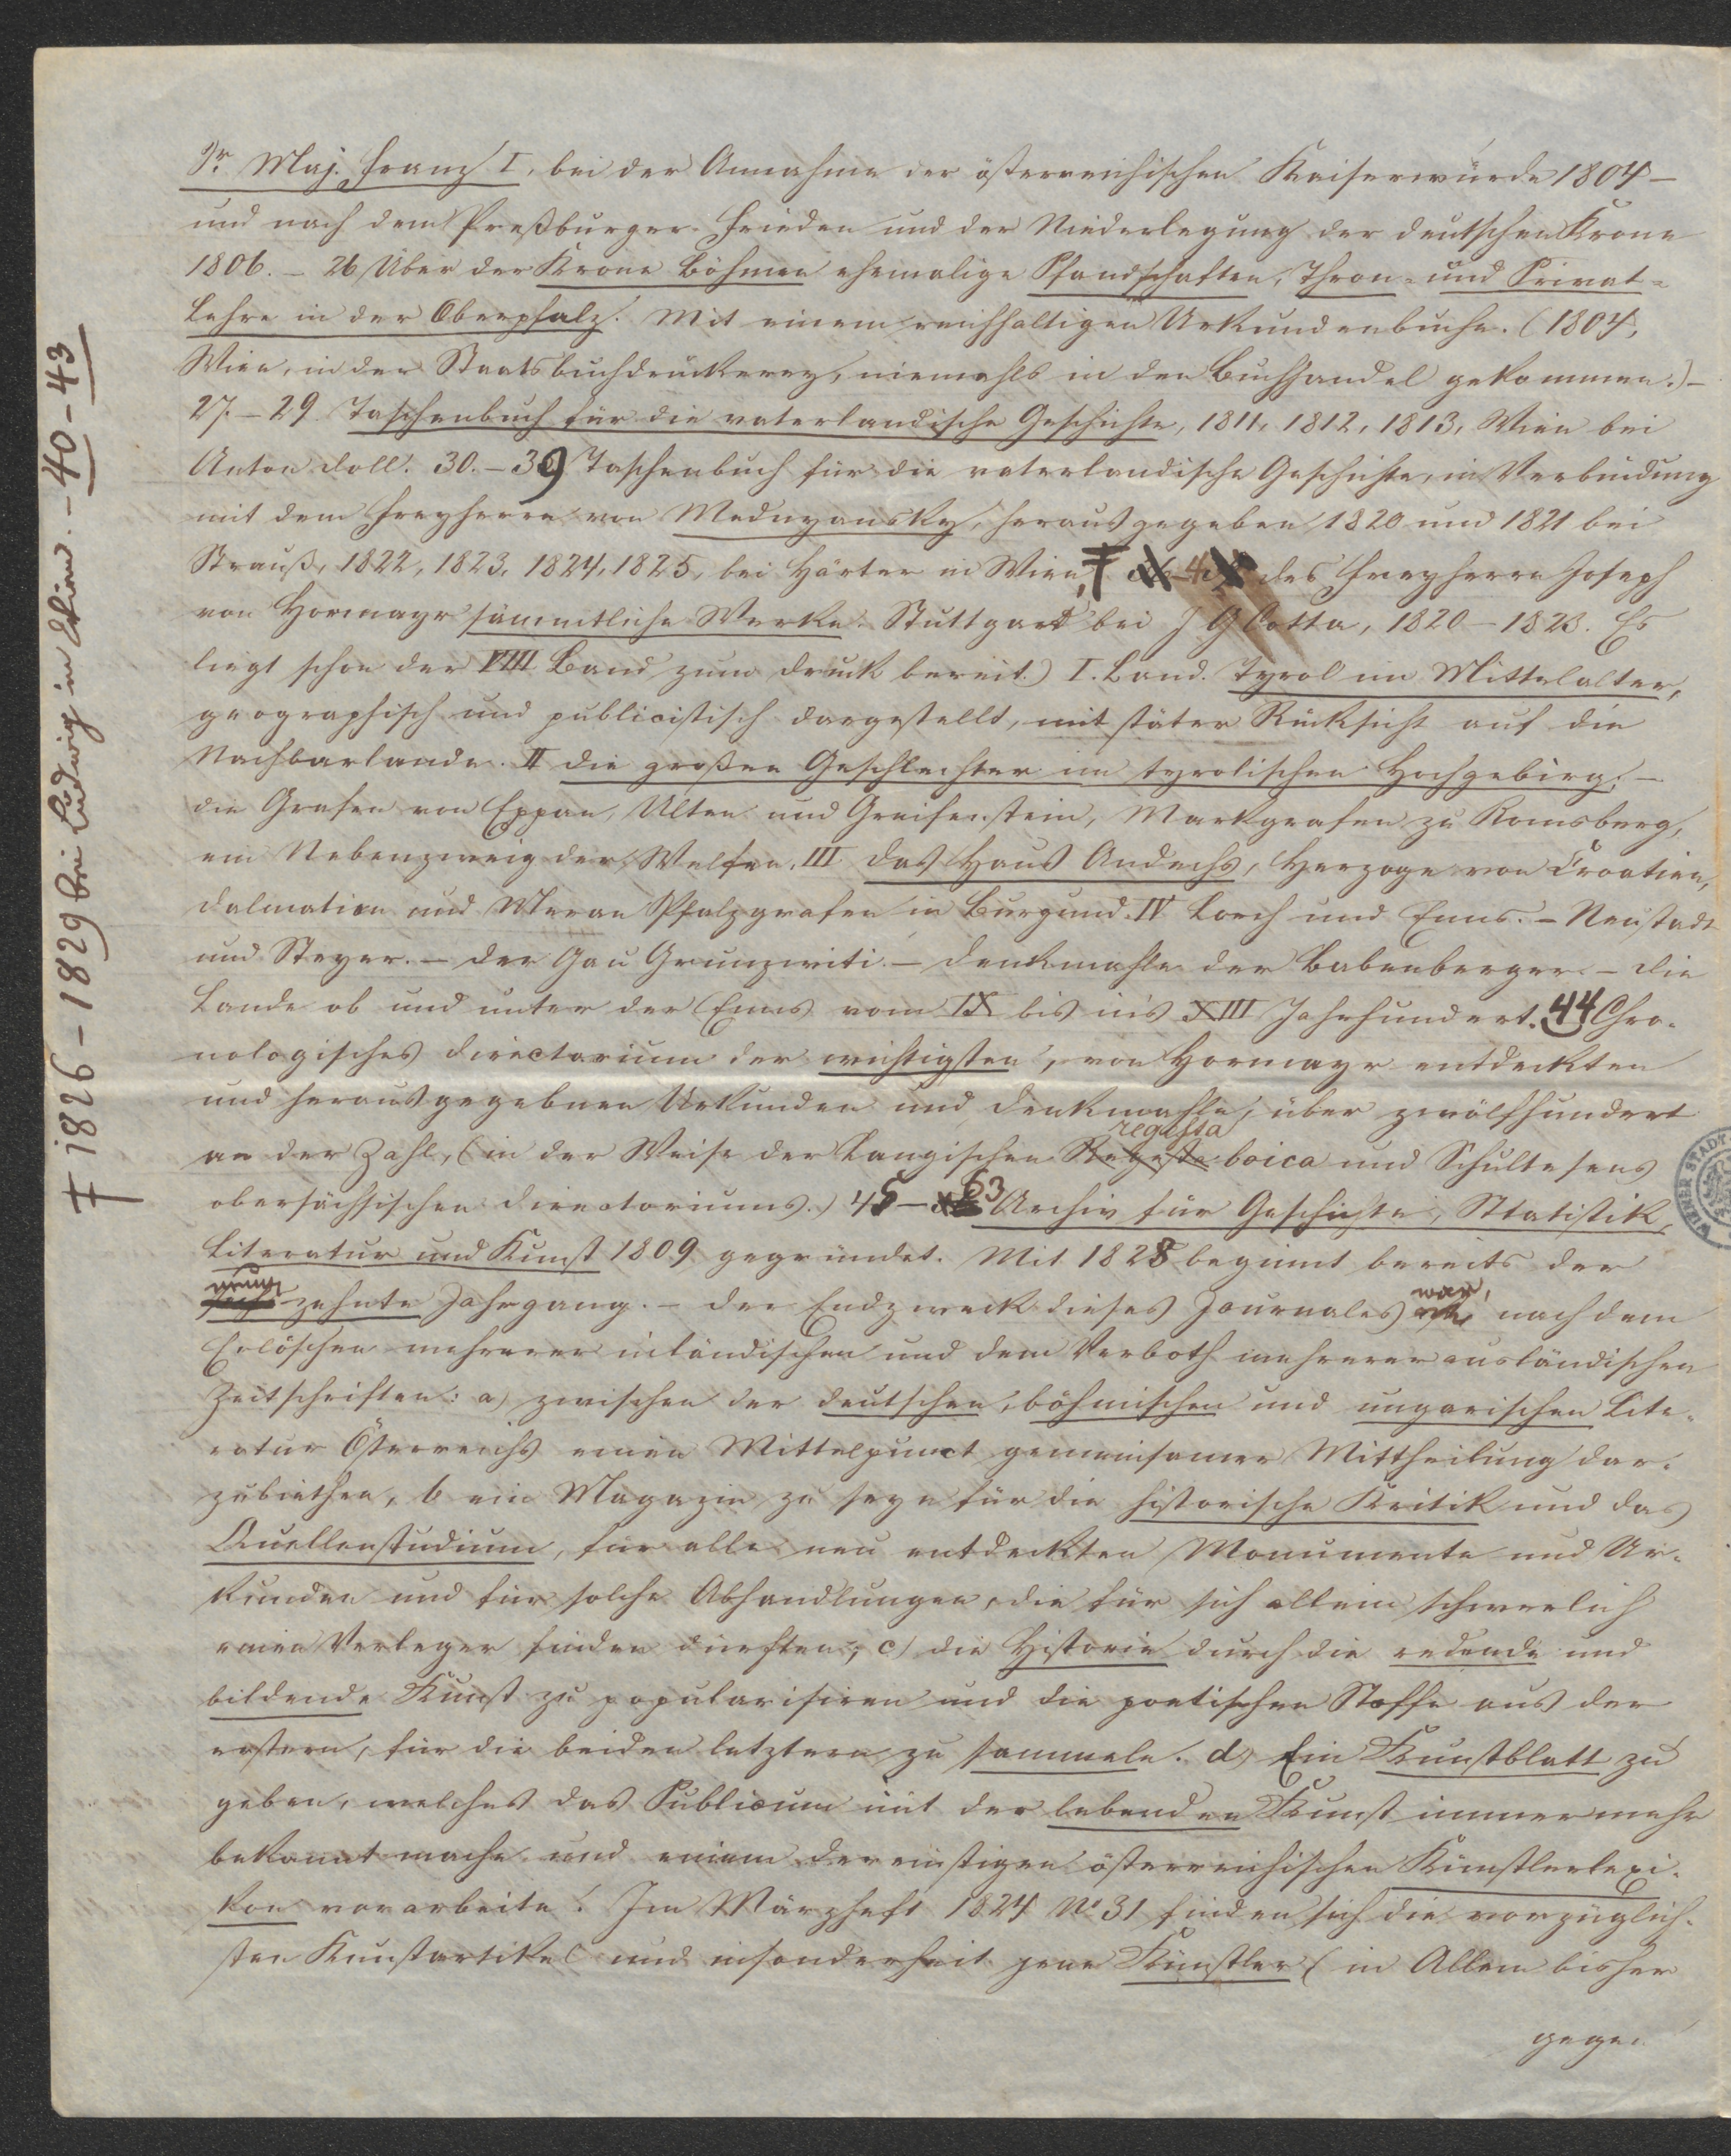 Sr Maj. Franz I. bei der Annahme der österreichischen Kaiserwürde 1804 –
und nach dem Preßburger Frieden und der Niederlegung der deutschen Krone
1806. – 26 Über der Krone Böhmen ehemalige Pfandschaften, Thron- und Privat-
Lehre in der Oberpfalz. Mit einem reichhaltigen Urkundenbuche. (1804,
Wien, in der Staatsbuchdruckerey, niemahls in den Buchhandel gekommen.) –
27. – 29. Taschenbuch für die vaterländische Geschichte, 1811, 1812, 1813, Wien bei
Anton Doll. 30. – 39 Taschenbuch für die vaterländische Geschichte, in Verbindung
mit dem Freyherrn von Mednyansky, herausgegeben 1820 und 1821 bei
Strauß, 1822, 1823, 1824, 1825, bei Härter in Wien, ‡ des Freyherrn Joseph
von Hormayr sämmtliche Werke. Stuttgart bei J G Cotta, 1820 – 1823. Es
liegt schon der VIII Band zum Druck bereit.) I. Band. Tyrol im Mittelalter,
geographisch und publicistisch dargestellt, mit stäter Rücksicht auf die
Nachbarlande. II die großen Geschlechter im tyrolischen Hochgebirg; –
die Grafen von Eppan, Ulten und Greifenstein, Markgrafen zu Romsberg,
ein Nebenzweig der Welfen. III das Haus Andechs, Herzoge von Croatien,
Dalmatien und Meran Pfalzgrafen in Burgund. IV Lorch und Enns. – Neustadt
und Steyer. – Der Gau Grunzwiti – Denkmahle der Babenberger – die
Lande ob und unter der Enns vom IX bis in's XIII Jahrhundert. 44 Chro-
nologisches Directorium der wichtigsten, von Hormayr entdeckten
und herausgegebnen Urkunden und Denkmahle, über zwölfhundert
an der Zahl, (in der Weise der Langischen Regesta regesta boica und Schultesens
obersächsischen Directoriums.) 45 – 63 Archiv für Geschichte, Statistik,
Literatur und Kunst 1809 gegründet. Mit 1828 beginnt bereits der
neunzehnte Jahrgang. – Der Endzweck dieses Journales war, nach dem
Erlöschen mehrerer inländischen und dem Verboth mehrerer ausländischen
Zeitschriften: a) zwischen der deutschen, böhmischen und ungarischen Lite-
ratur Österreichs einen Mittelpunct gemeinsamer Mittheilung dar-
zubiethen, b ein Magazin zu seyn für die historische Kritik und das
Quellenstudium, für alle neu entdeckten Monumente und Ur-
kunden und für solche Abhandlungen, die für sich allein schwerlich
einen Verleger finden dürften; c) die Historie durch die redende und
bildende Kunst zu popularisiren und die poetischen Stoffe aus der
erstern, für die beiden letztern zu sammeln. d) Ein Kunstblatt zu
geben, welches das Publicum mit der lebenden Kunst immer mehr
bekannt mache und einem dereinstigen österreichischen Künstlerlexi-
kon vorarbeite. Im Märzheft 1824 No 31 finden sich die vorzüglich-
sten Kunstartikel und insonderheit jene Künstler (in Allem bisher
gegen
‡ 1826 – 1829 bei Ludwig in Wien. – 40 – 43
WIENER STADT